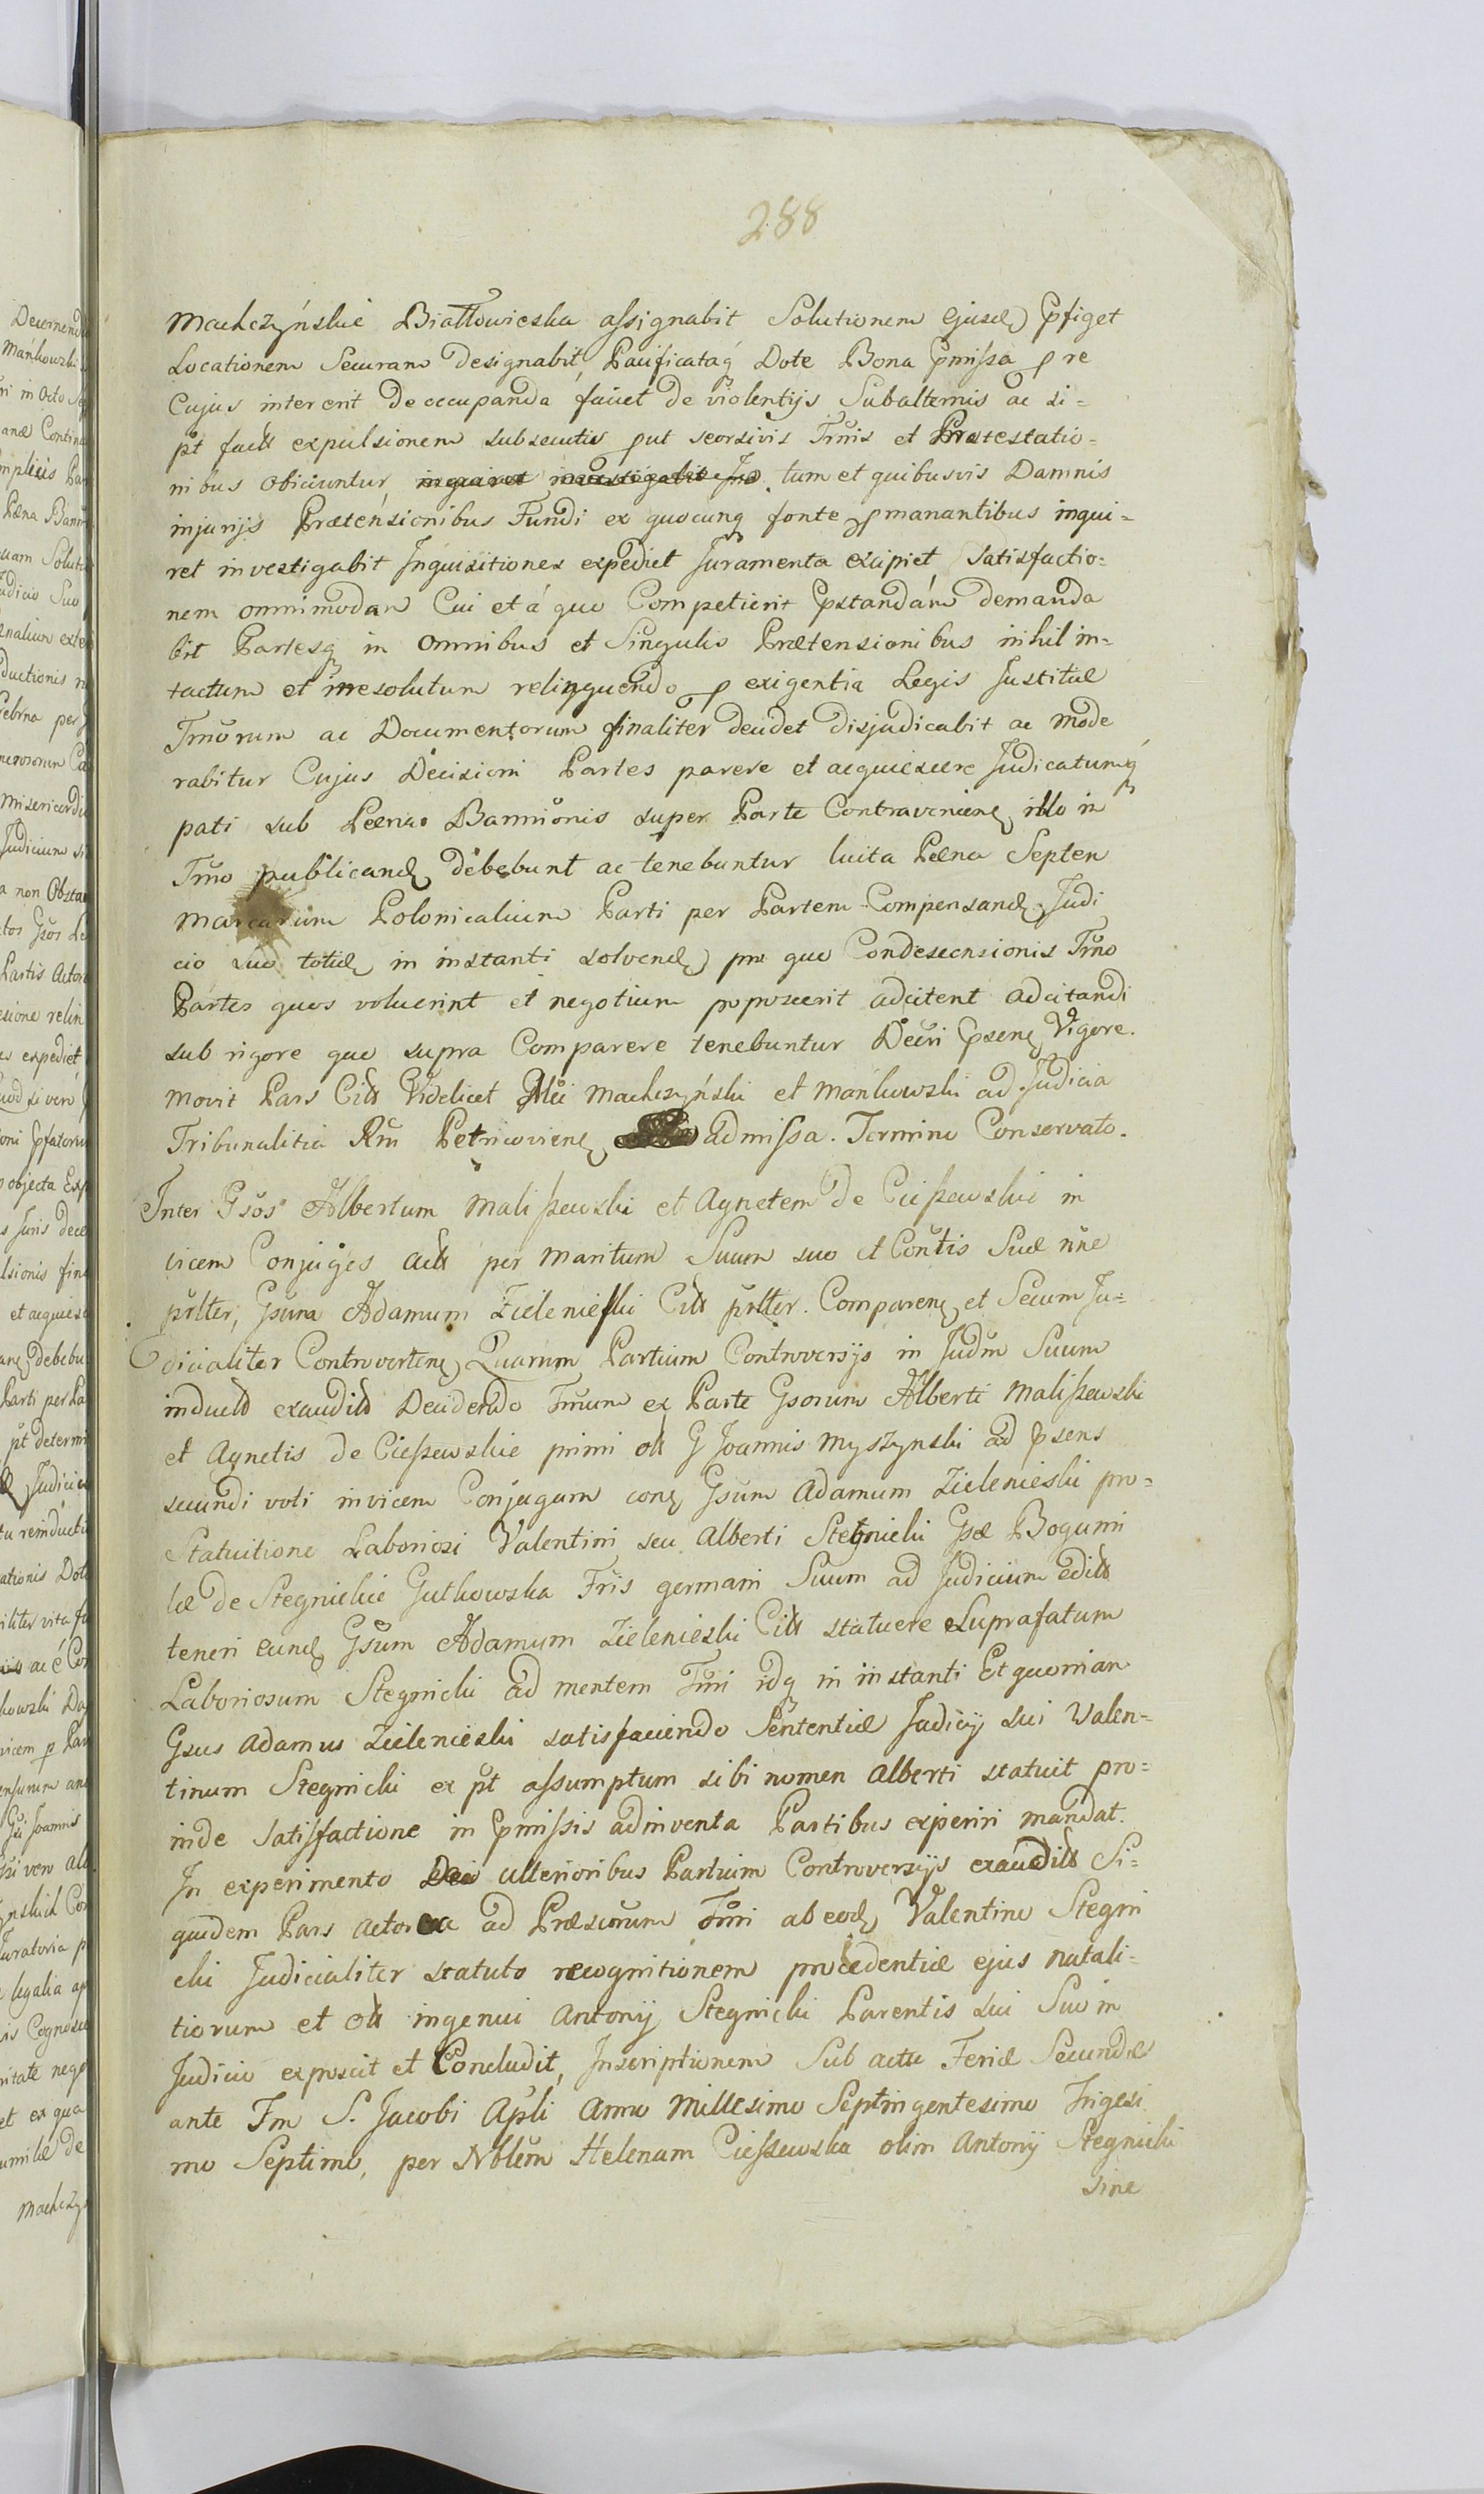 288
Machczyńskie Białłowieska assignabit Solutionem ejusd pfiget
Locationem Securam designabit, Pacificataq Dote Bona pmissa p re
Cujus intererit de occupanda faciet de violentijs Subalternis ac si=
pt factt expulsionem subsecutis put seorsivis Trnis et Protestatio=
nibus obiciuntur, inquiret investigabit Jno tum et quibusvis Damnis
injurijs Prætensionibus Fundi ex quocunq fonte pmanantibus inqui=
ret investigabit Inquisitiones expediet Juramenta excipiet, Satisfactio=
nem omnimodam Cui et á quo Competierit pstandam demanda
bit Partesq in omnibus et Singulis Prætensionibus nihil in=
tactum et irresolutum relinquendo p exigentia Legis Justitiæ
Tmorum ac Documentorum finaliter decidet disjudicabit ac mode
rabitur Cujus Decisioni Partes parere et acquiescere Judicatumq
pati sub Pæna Bannionis super Parte Contravenien illo in
Tmo publicand debebunt ac tenebuntur luita Pæna Septem
Marcarum Polonicalium Parti per Partem Compensand Judi
cio suo totid in instanti solvend) pro quo Condescensionis Tmo
Partes quos voluerint et negotium poposcerit adcitent adcitandi
sub rigore quo supra Comparere tenebuntur Decri psen Vigore.
Movit Pars Citt Videlicet Mci Machczyński et Mańkowski ad Judicia
Tribunalitia Rni Petricovien admissa. Termino Conservato.
Inter Gsos Albertum Maliszewski et Agnetem de Cieszewskie in
vicem Conjuges Actt per Maritum Suum suo et Contis Suæ nne
psllter, Gsum Adamum Zielenieski Citt psllter. Comparen et Secum Ju=
dicialiter Controverten, Quarum Partium Controversijs in Judm Suum
inductt exauditt Decidendo Tmum ex Parte Gsorum Alberti Maliszewski
et Agnetis de Cieszewskie primi ott G Joannis Myszynski ad psens
secundi voti invicem Conjugum con Gsum Adamum Zielenieski pro=
Statuitione Laboriosi Valentini seu Alberti Stegnicki Gsæ Bogumi
læ de Stegnickie Gutkowska Fris germani Suum ad Judicium editt
teneri eund Gsum Adamum Zielenieski Citt statuere Suprafatum
Laboriosum Stegnicki ad mentem Tmi idq in instanti Et quoniam
Gsus Adamus Zielenieski satisfaciendo Sententiæ Judicij sui Valen=
tinum Stegnicki ex pt assumptum sibi nomen Alberti statuit pro=
inde Satisfactione in pmissis adinventa Partibus experiri mandat.
In experimento ulterioribus Partium Controversijs exauditt Si=
quidem Pars Actorea ad Præscrum Tmi ab eod Valentino Stegni
cki Judicialiter statuto recognitionem procedentiæ ejus natali=
tiorum et ott ingenui Antonij Stegnicki Parentis sui Suo in
Judicio exposcit et Concludit, Inscriptionem Sub actu Feriæ Secundæ
ante Fm S. Jacobi Apli Anno Millesimo Septingentesimo Trigesi
mo Septimo, per Nblem Helenam Cieszewska olim Antonij Stegnicki
sine